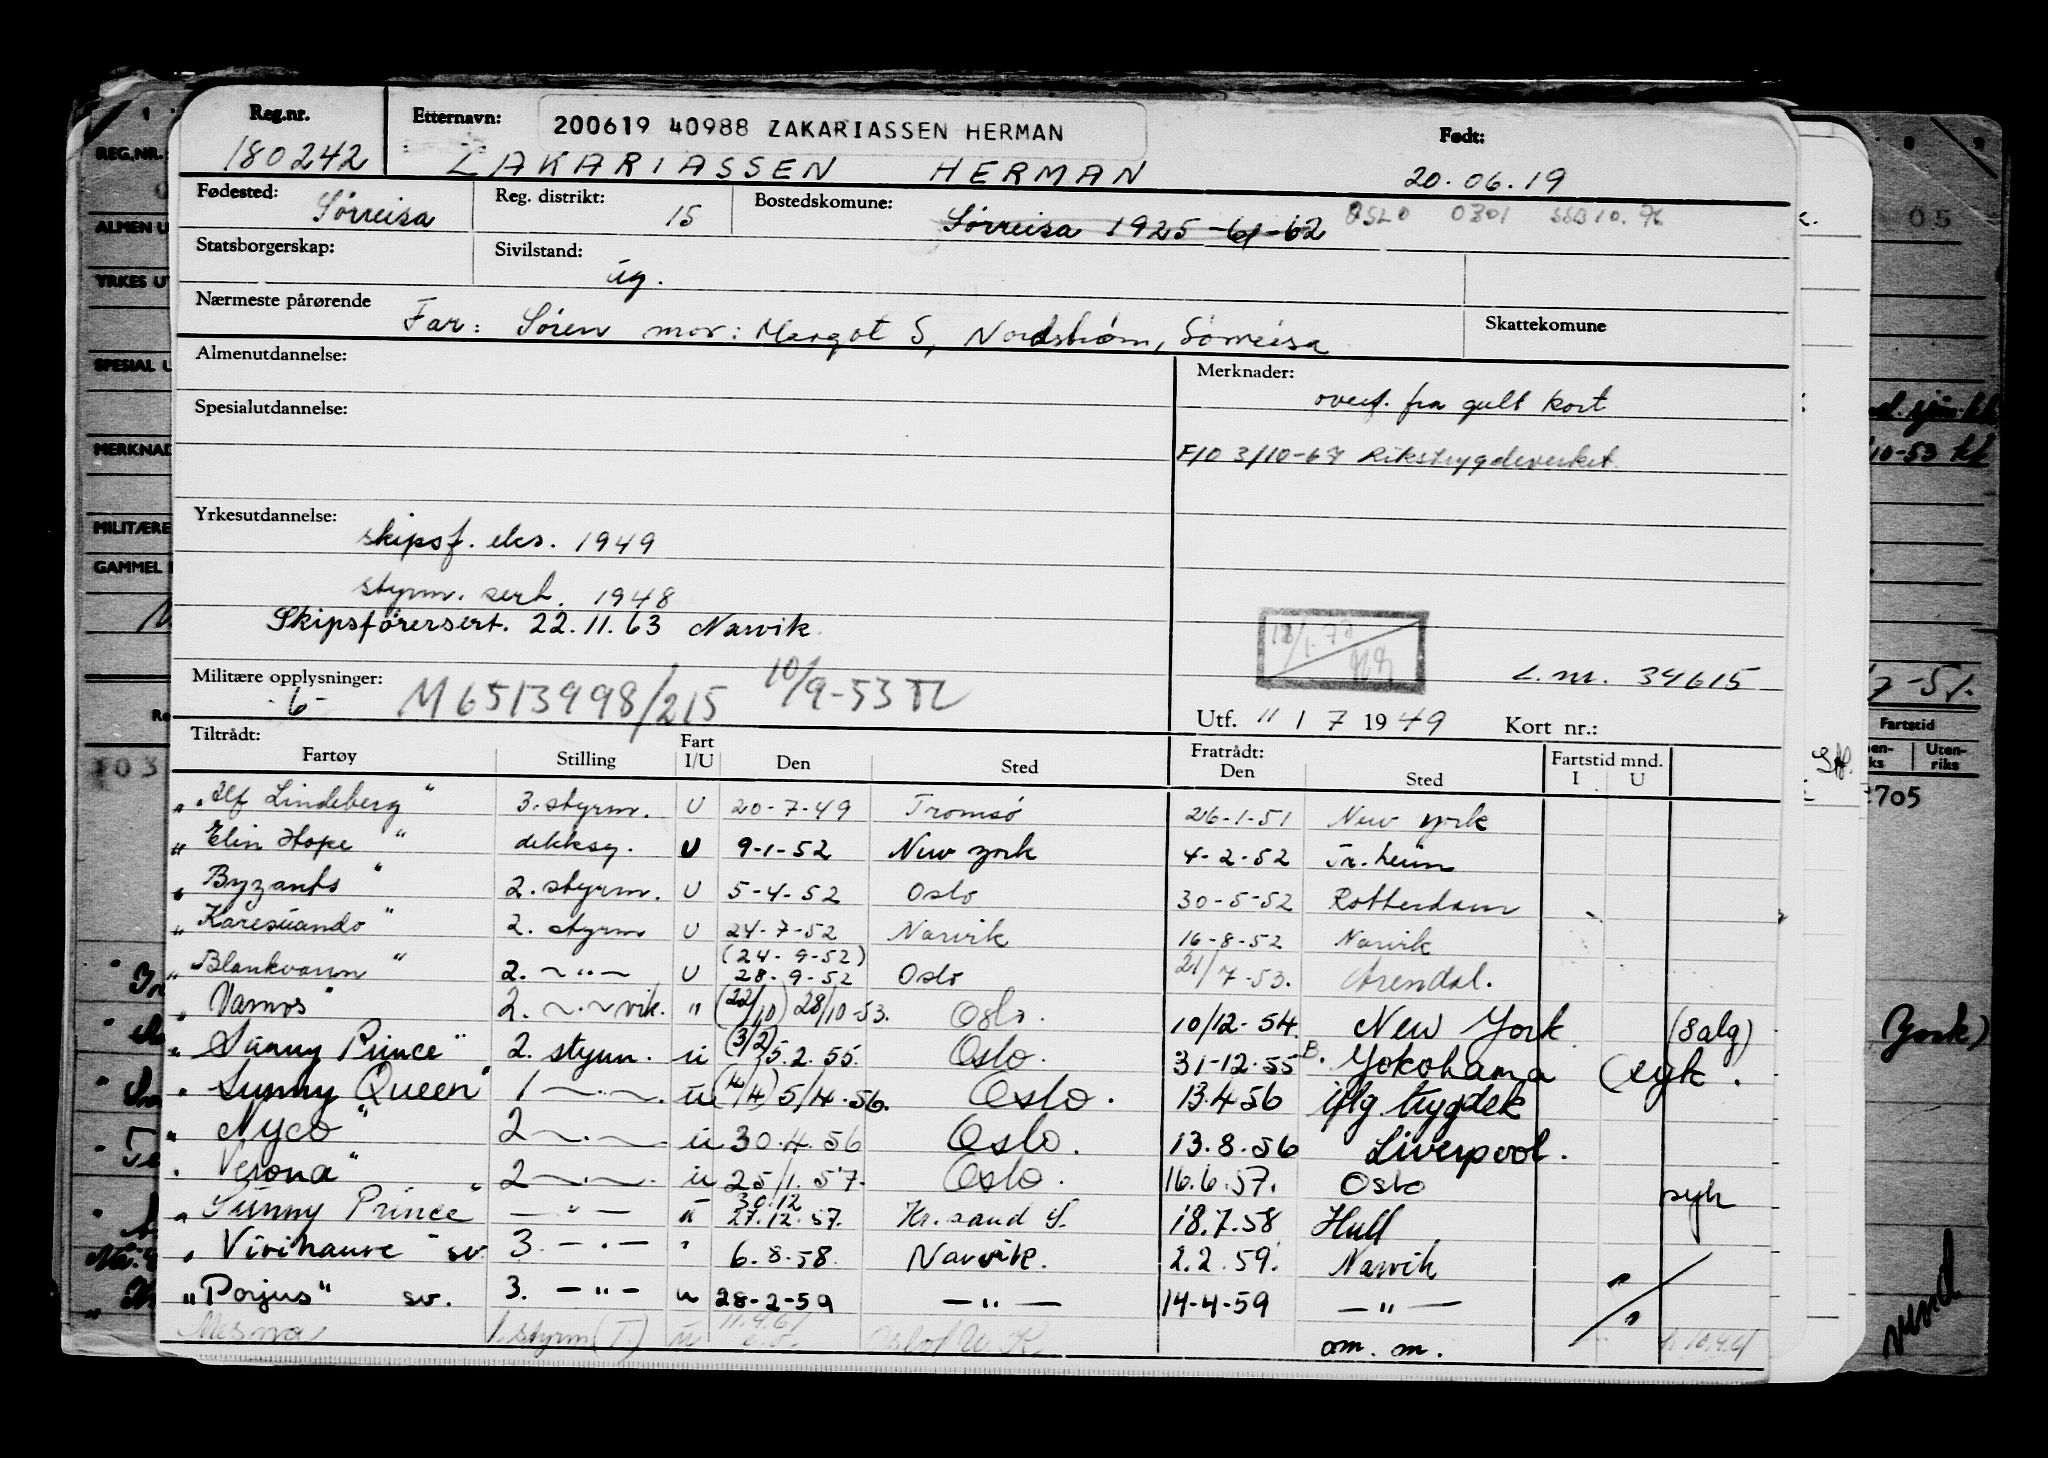 Reg.nr. Etternavn: 200619 40988 ZAKARIASSEN HERMAN Født:
180242 ZAKARIASSEN HERMAN 20.06.19
Fødested: Sørreisa Reg. distrikt: 15 Bostedskomune: Sørreisa 1925 -61-62 OSLO 0301 SSB 10.76
Statsborgerskap: Sivilstand: ug.
Nærmeste pårørende Far: Søren mor: Margot S, Nordstrøm, Sørreisa Skattekomune
Almenutdannelse: Merknader:
overf. fra gult kort
Spesialutdannelse:
F10 3/10-67 Rikstrygdeverket
Yrkesutdannelse: skipsf. eks. 1949
styrm. sert. 1948
Skipsförersert. 22.11.63 Narvik
L.m. 34615
Militære opplysninger: -6- M6513998/215 10/9-53 TL
Utf. 11 / 7 1949 Kort nr.:
Tiltrådt: Fratrådt:
Fartøy Stilling Fart I/U Den Sted Den Sted Fartstid mnd. I U
"Alf Lindeberg" 3. styrm. U 20-7-49 Tromsø 26-1-51 New York
"Elin Hope" dekksg. U 9-1-52 New York 4-2-52 Tr.heim
"Byzants" 2. styrm. U 5-4-52 Oslo 30-5-52 Rotterdam
"Karesuando" 2. styrm U 24-7-52 Narvik 16-8-52 Narvik
"Blankvann" 2. ~"~ U (24-9-52) 28-9-52 Oslo 21/7-53. Arendal.
"Vamos" 2. ~.~ vik. " (22/10) 28/10-53. Oslo. 10/12-54. New York (salg)
"Sunny Prince" 2. styrm. u (3/2) 5.2.55. Oslo. 31-12-55 Yokohama (syk.
"Sunny Queen" 1 ~.~. u (4/4) 5/4-56. Oslo. 13.4 56 iflg trygdek
"Nyco" 2 ~.~. u 30.4.56 Oslo. 13.8.56 Liverpool.
"Verona" 2 ~.~. u 25/1.57. Oslo. 16.6.57. Oslo
"Sunny Prince" — " — u 30.12 27.12.57. Kr.sand S. 18.7.58 Hull syk
"Virihaure" sv. 3. —.— " 6.8.58 Narvik. 2.2.59. Narvik "
"Porjus" sv. 3. —"— u 28-2-59 —"— 14-4-59 —"— "
Mesna 1. styrm (T.) u 11.4.61 om. m.
REG.NR.
ALMEN U
YRKES UT
SPESIAL U
MERKNAD
MILITÆRE
GAMMEL
05
10-53
7-51.
Fartstid
Uten-riks
2705
York)
vend